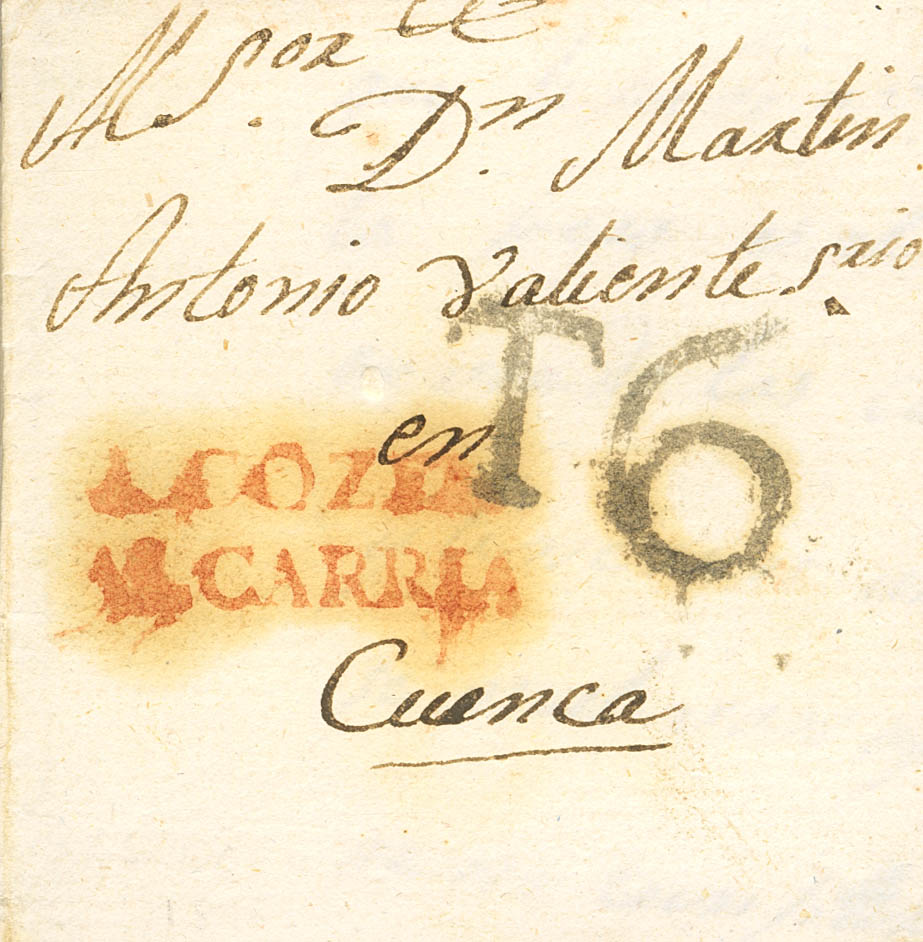 Al Sor
Dn. Martin
Antonio Valiente srio
T6
en
COZEA
ALCARRIA
Cuenca